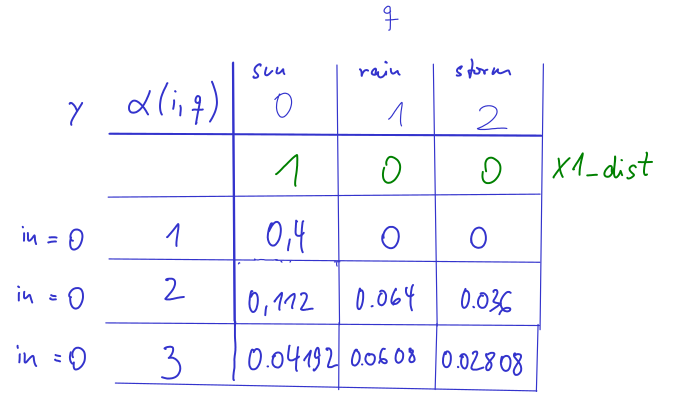 q
sun rain storm
γ α(i,q) 0 1 2
1 0 0 X1_dist
in = 0 1 0,4 0 0
in = 0 2 0,112 0.064 0.036
in = 0 3 0.04192 0.0608 0.02808